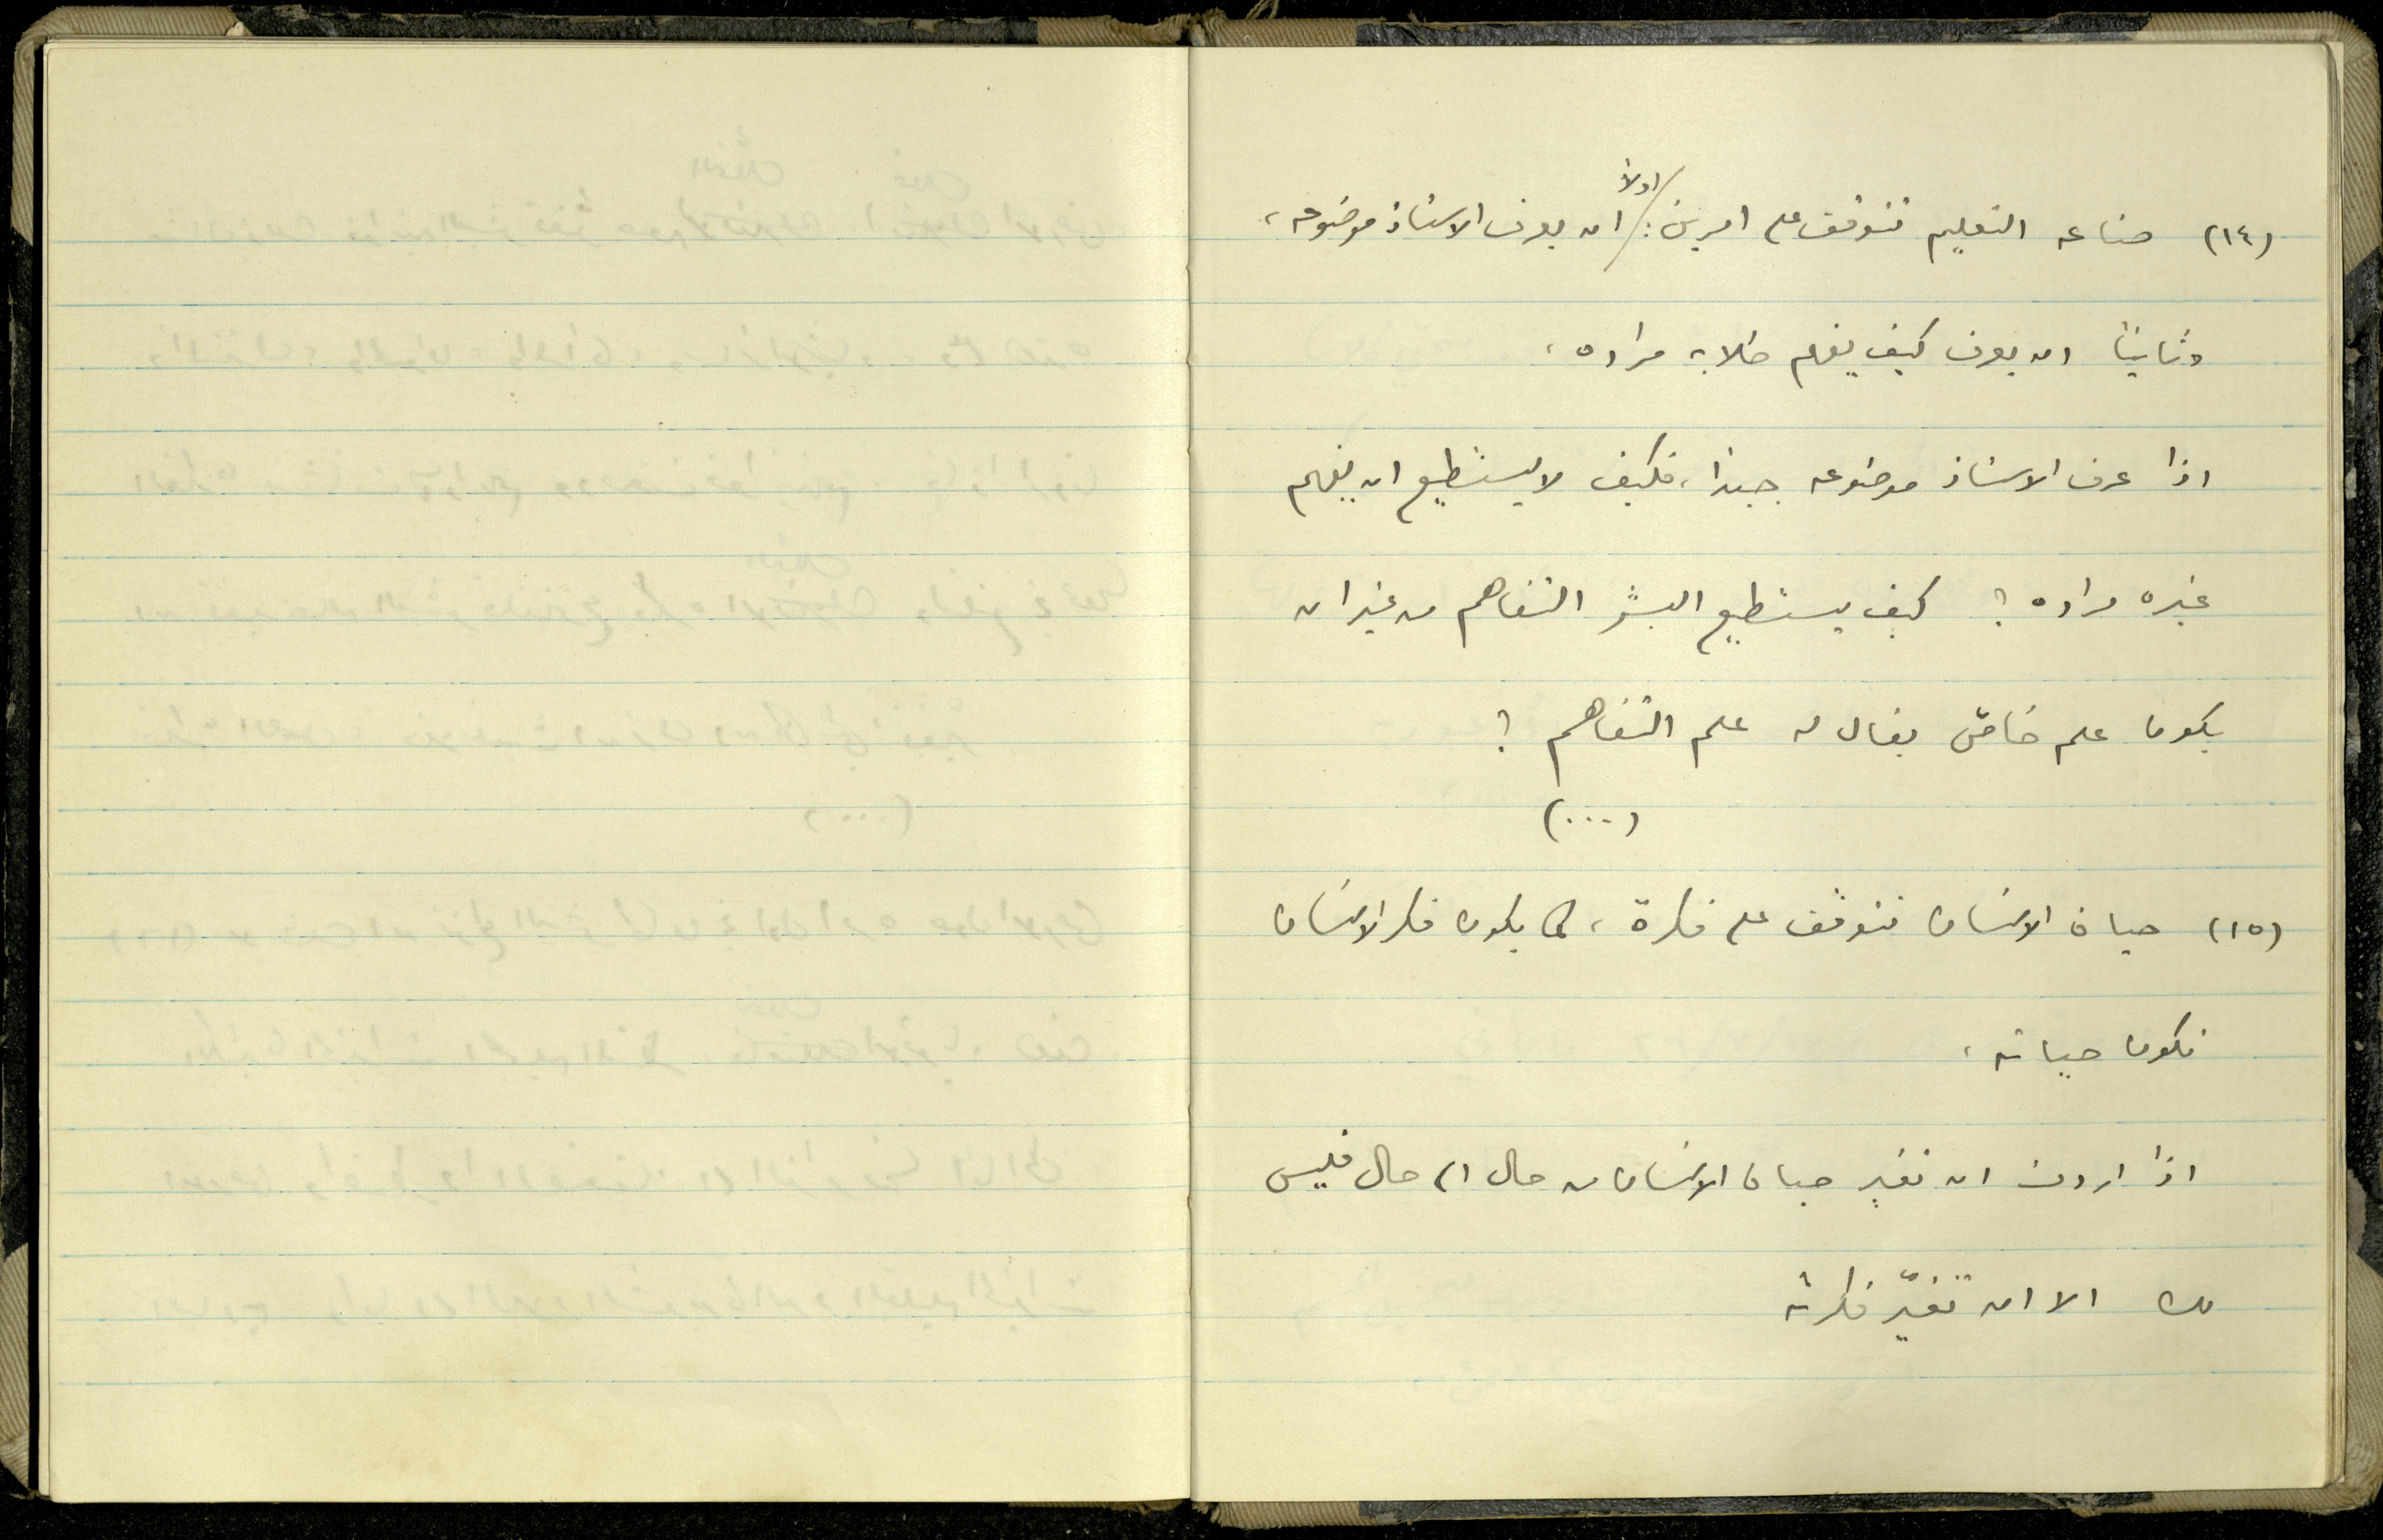 (١٤) صناعة التعليم تتوقف على امرين: اولاً ان يعرف الاستاذ موضوعه،
وثانيًا ان يعرف كيف يفهم طلابه مراده،
اذا عرف الاستاذ موضوعه جيدا، فكيف لا يستطيع ان يفهم
غيره مراده؟ كيف يستطيع البشر التفاهم من غير ان
يكون علم خاصّ يقال له علم التفاهم؟
(...)
(١٥) حياة الانسان تتوقف على فكرة، كما يكون فكر الانسان
فكون حياته،
اذا اردت ان تغير حياة الانسان من حال الى حال فليس
لك الا ان تغيّر فكرته